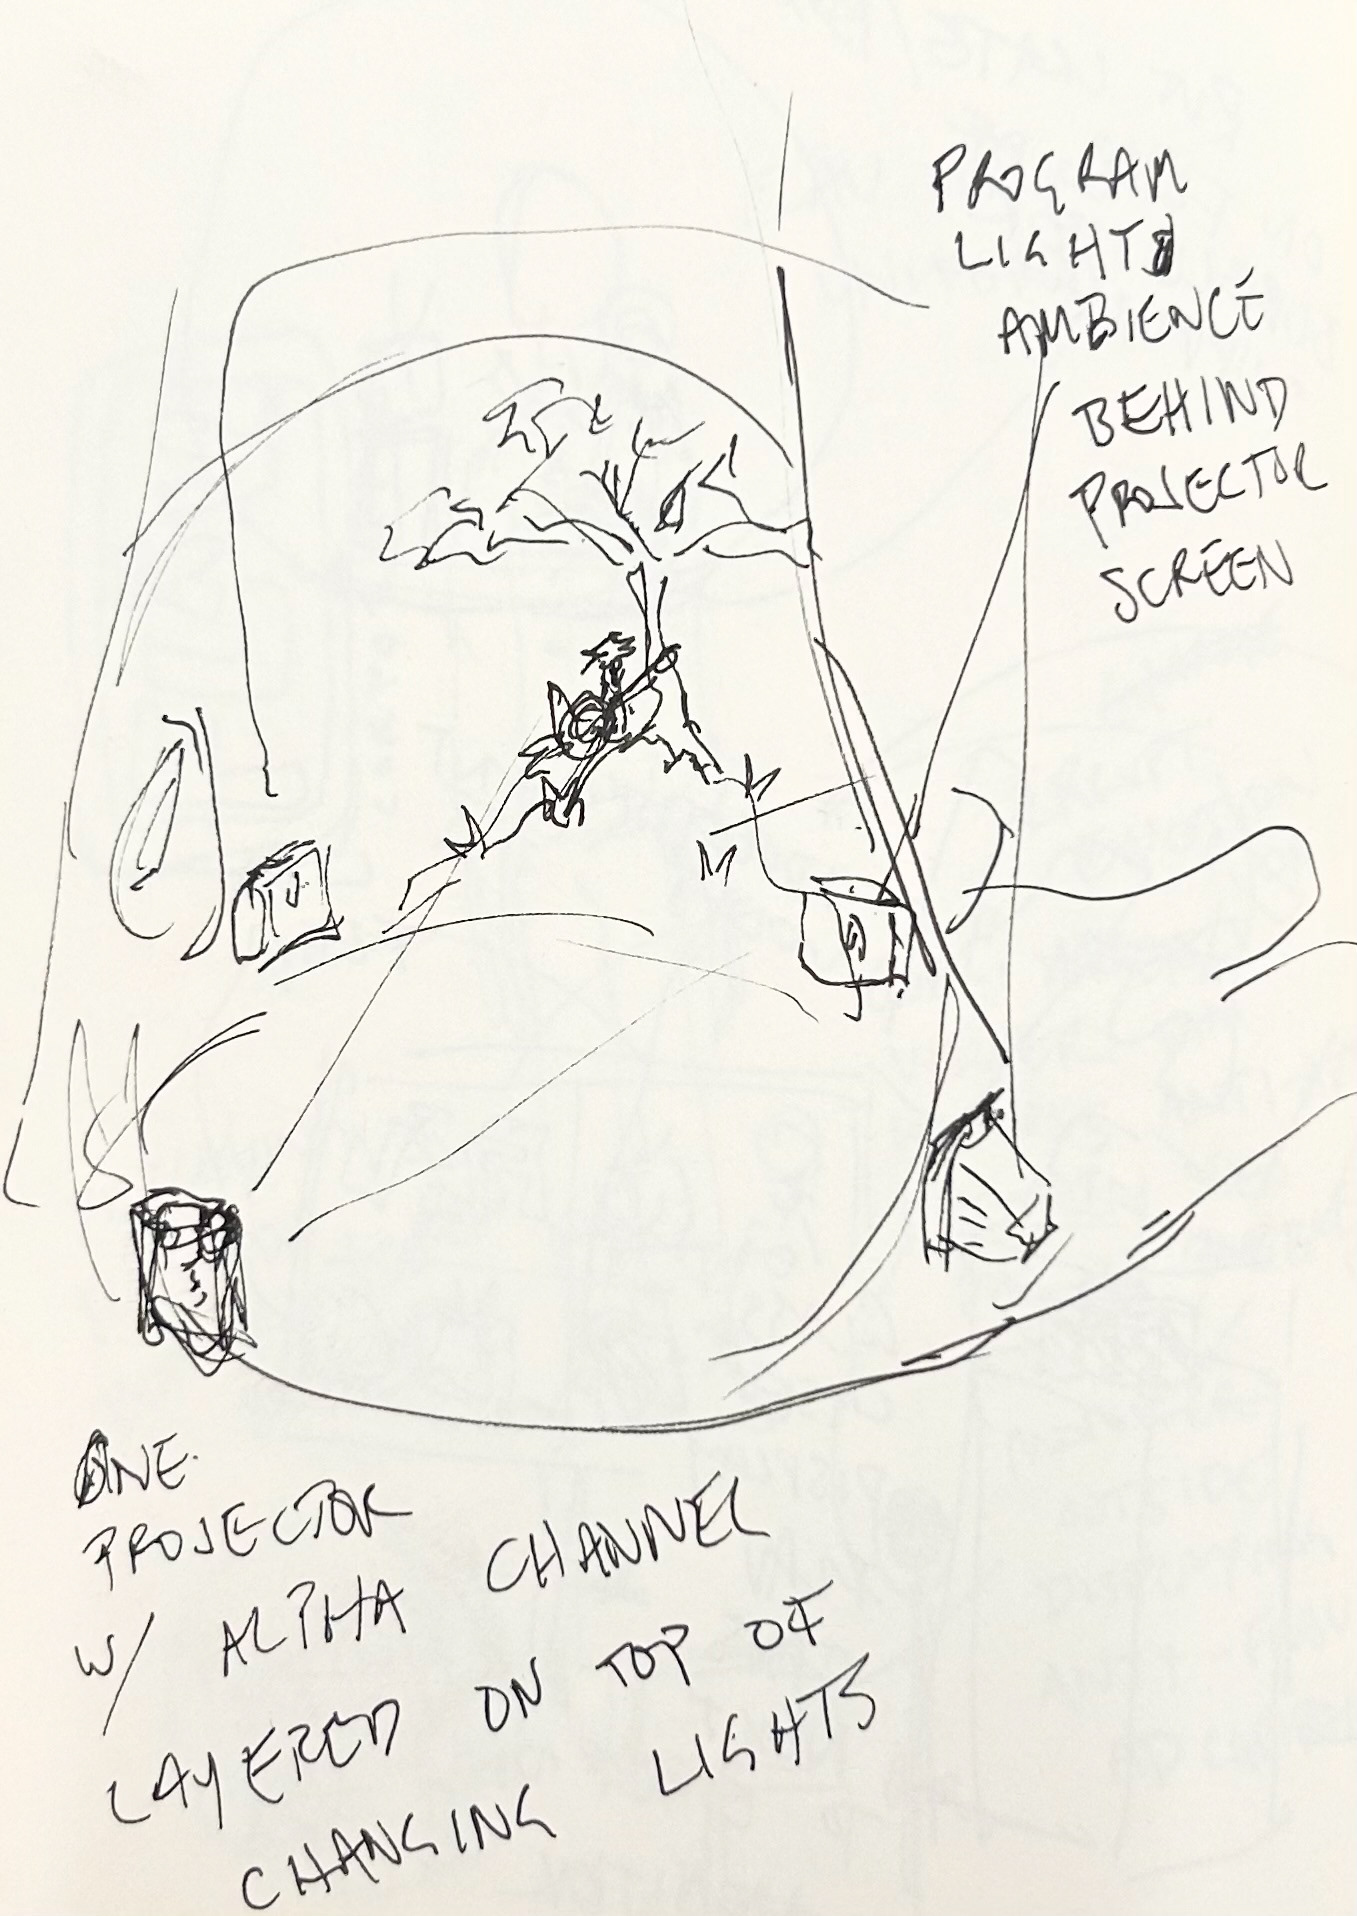 PROGRAM
LIGHTS
AMBIENCE
BEHIND
PROJECTOR
SCREEN
ONE
PROJECTOR
W/ ALPHA CHANNEL
LAYERED ON TOP OF
CHANGING LIGHTS